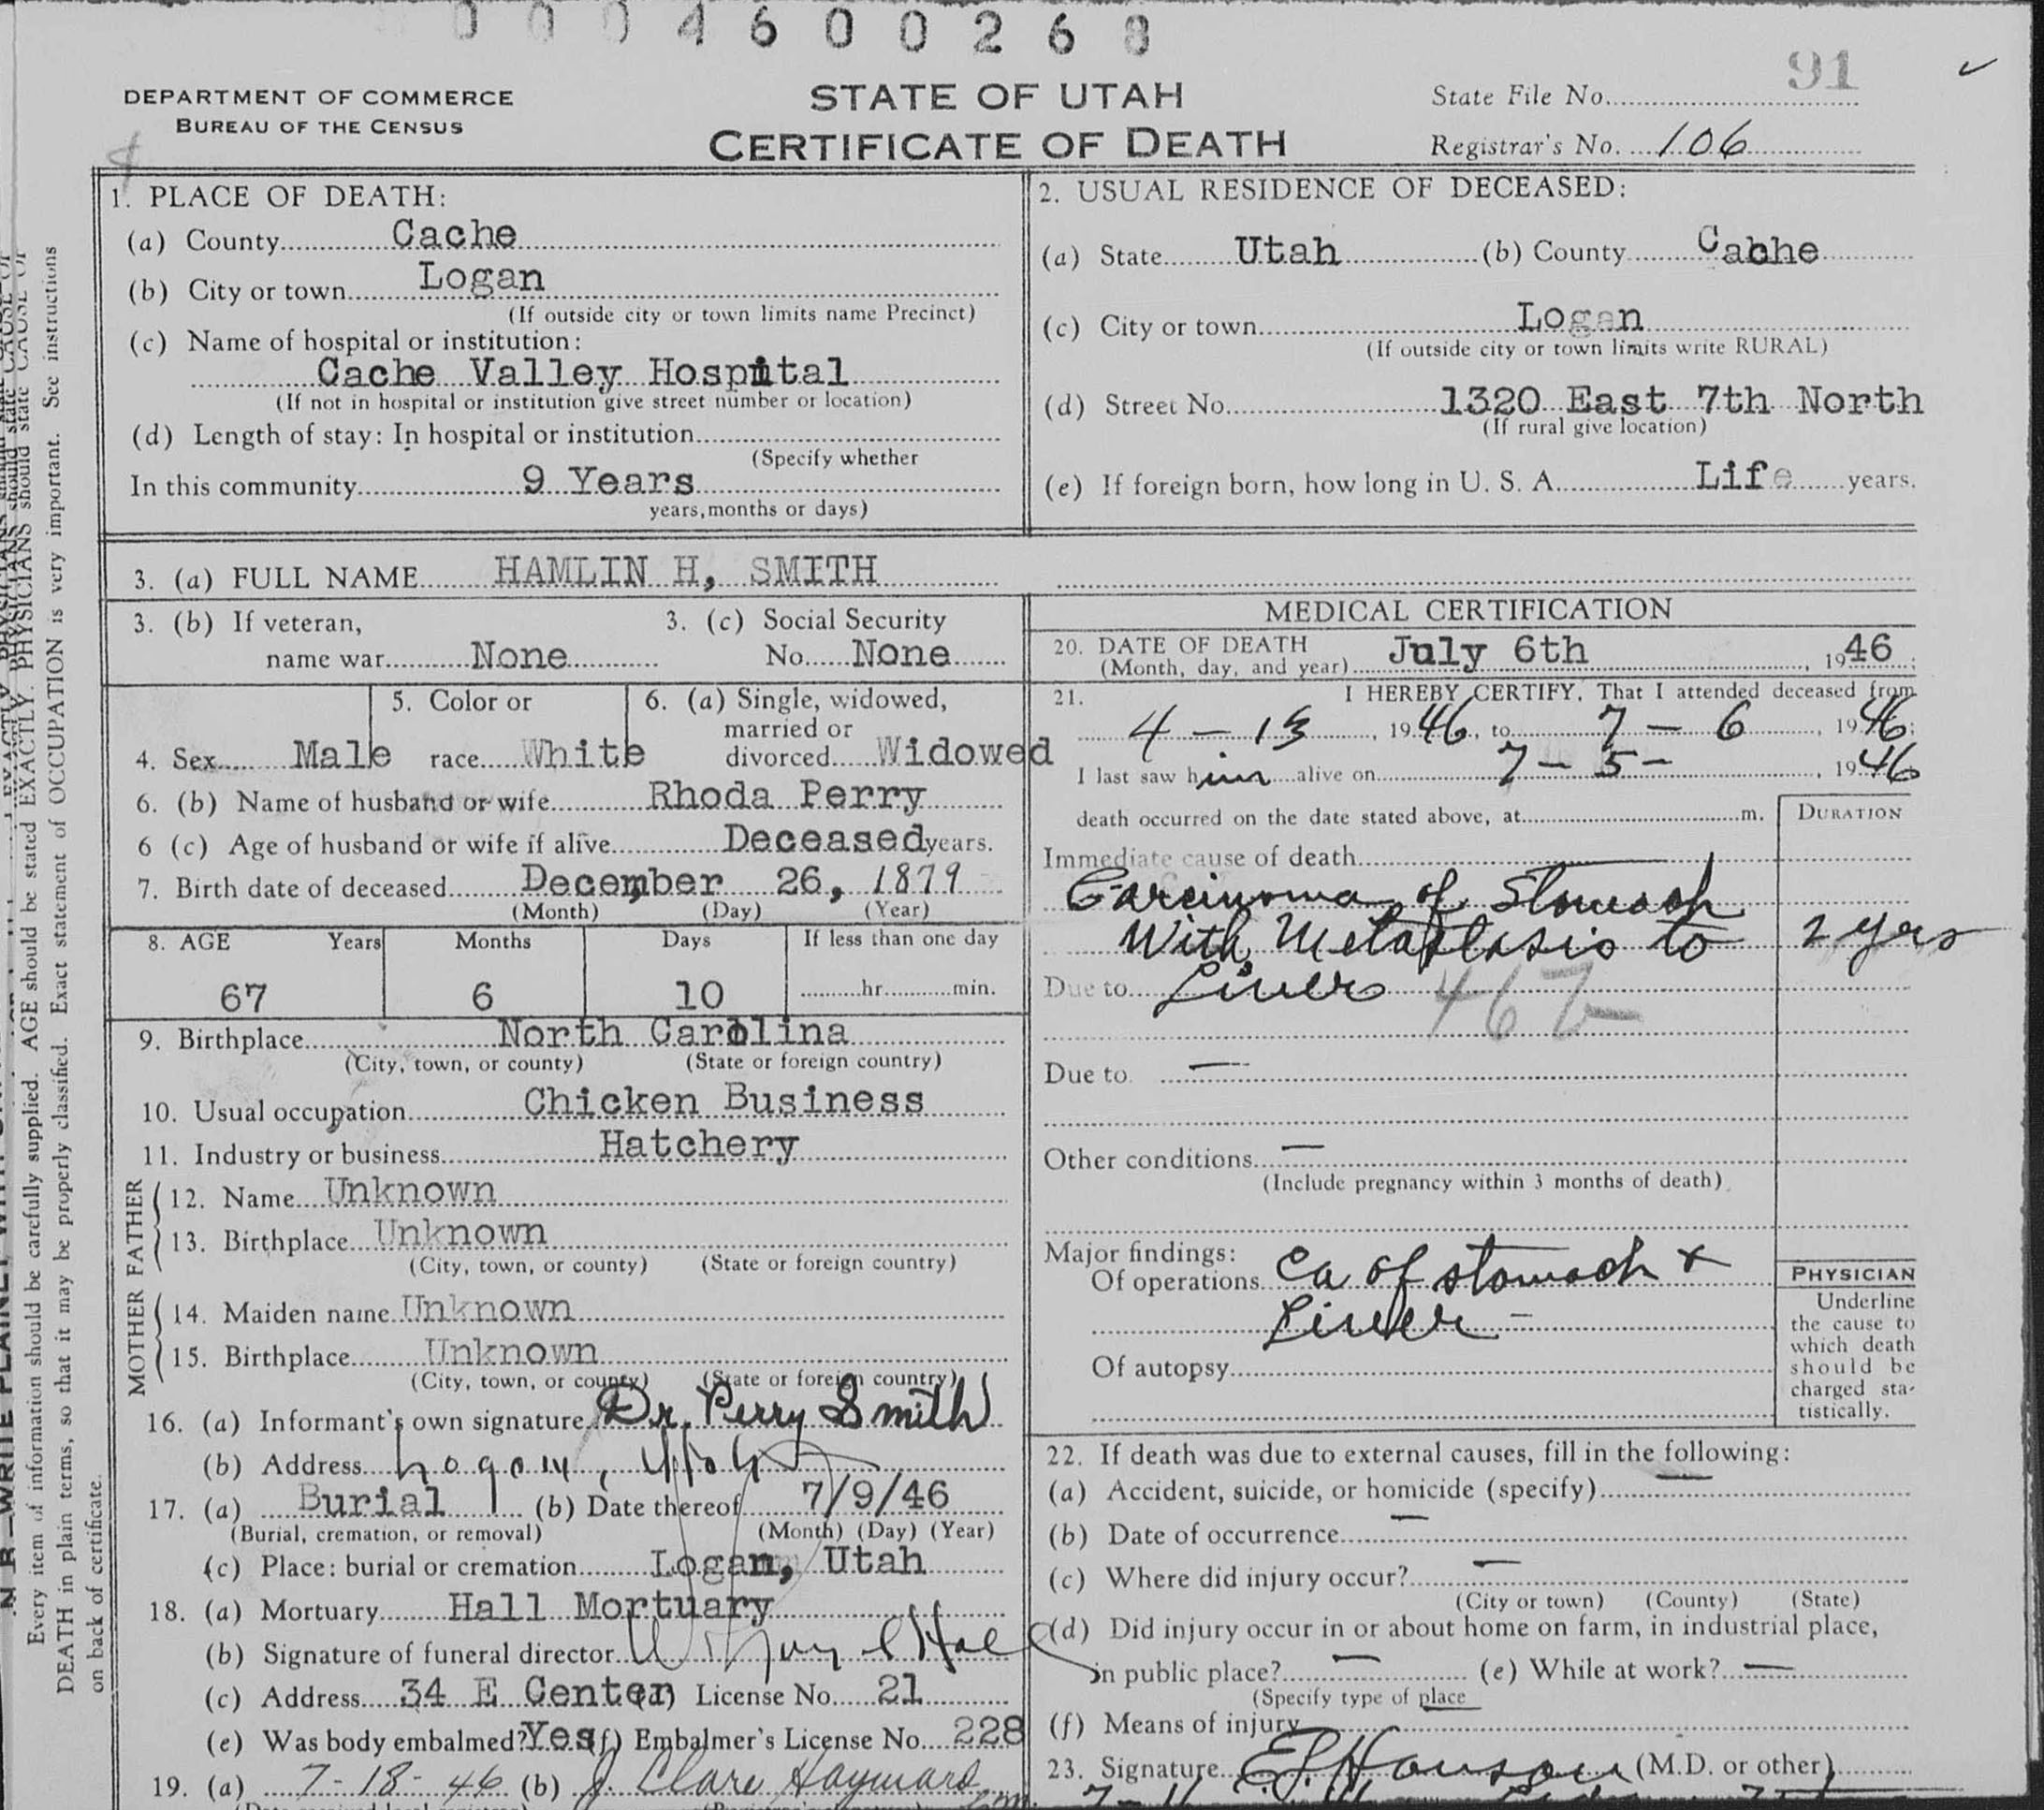 0004600268
91
DEPARTMENT OF COMMERCE
BUREAU OF THE CENSUS
STATE OF UTAH
CERTIFICATE OF DEATH
State File No.
Registrar's No. 106
1. PLACE OF DEATH:
(a) County Cache
(b) City or town Logan
(If outside city or town limits name Precinct)
(c) Name of hospital or institution:
Cache Valley Hospital
(If not in hospital or institution give street number or location)
(d) Length of stay: In hospital or institution
(Specify whether
In this community 9 Years
years, months or days)
2. USUAL RESIDENCE OF DECEASED:
(a) State Utah (b) County Cache
(c) City or town Logan
(If outside city or town limits write RURAL)
(d) Street No. 1320 East 7th North
(If rural give location)
(e) If foreign born, how long in U. S. A. Life years.
3. (a) FULL NAME HAMLIN H, SMITH
3. (b) If veteran, 3. (c) Social Security
name war None No. None
5. Color or 6. (a) Single, widowed,
married or
4. Sex Male race White divorced Widowed
6. (b) Name of husband or wife Rhoda Perry
6 (c) Age of husband or wife if alive Deceased years.
7. Birth date of deceased December 26, 1879
(Month) (Day) (Year)
8. AGE Years Months Days If less than one day
67 6 10 hr. min.
9. Birthplace North Carolina
(City, town, or county) (State or foreign country)
10. Usual occupation Chicken Business
11. Industry or business Hatchery
FATHER
12. Name Unknown
13. Birthplace Unknown
(City, town, or county) (State or foreign country)
MOTHER
14. Maiden name Unknown
15. Birthplace Unknown
(City, town, or county) (State or foreign country)
16. (a) Informant's own signature Dr. Perry Smith
(b) Address Logan, Utah
17. (a) Burial (b) Date thereof 7/9/46
(Burial, cremation, or removal) (Month) (Day) (Year)
(c) Place: burial or cremation Logan, Utah
18. (a) Mortuary Hall Mortuary
(b) Signature of funeral director Hall
(c) Address 34 E Center (d) License No. 21
(e) Was body embalmed? Yes (f) Embalmer's License No. 228
19. (a) 7-18-46 (b) J. Clare Hayward
MEDICAL CERTIFICATION
20. DATE OF DEATH
(Month, day, and year) July 6th, 1946
21. I HEREBY CERTIFY, That I attended deceased from
4-13, 1946, to 7-6, 1946;
I last saw him alive on 7-5-, 1946
death occurred on the date stated above, at m.
DURATION
Immediate cause of death
Carcinoma of Stomach
With Metastasis to 2 yrs
Due to Liver 46
Due to —
Other conditions —
(Include pregnancy within 3 months of death)
Major findings:
Of operations Ca of stomach +
Liver -
Of autopsy
PHYSICIAN
Underline
the cause to
which death
should be
charged sta-
tistically.
22. If death was due to external causes, fill in the following:
(a) Accident, suicide, or homicide (specify) —
(b) Date of occurrence —
(c) Where did injury occur? —
(City or town) (County) (State)
(d) Did injury occur in or about home on farm, in industrial place,
in public place? — (e) While at work? —
(Specify type of place
(f) Means of injury
23. Signature (M.D. or other)
Every item of information should be carefully supplied. AGE should be stated EXACTLY. PHYSICIANS should state CAUSE OF
DEATH in plain terms, so that it may be properly classified. Exact statement of OCCUPATION is very important. See instructions
on back of certificate.